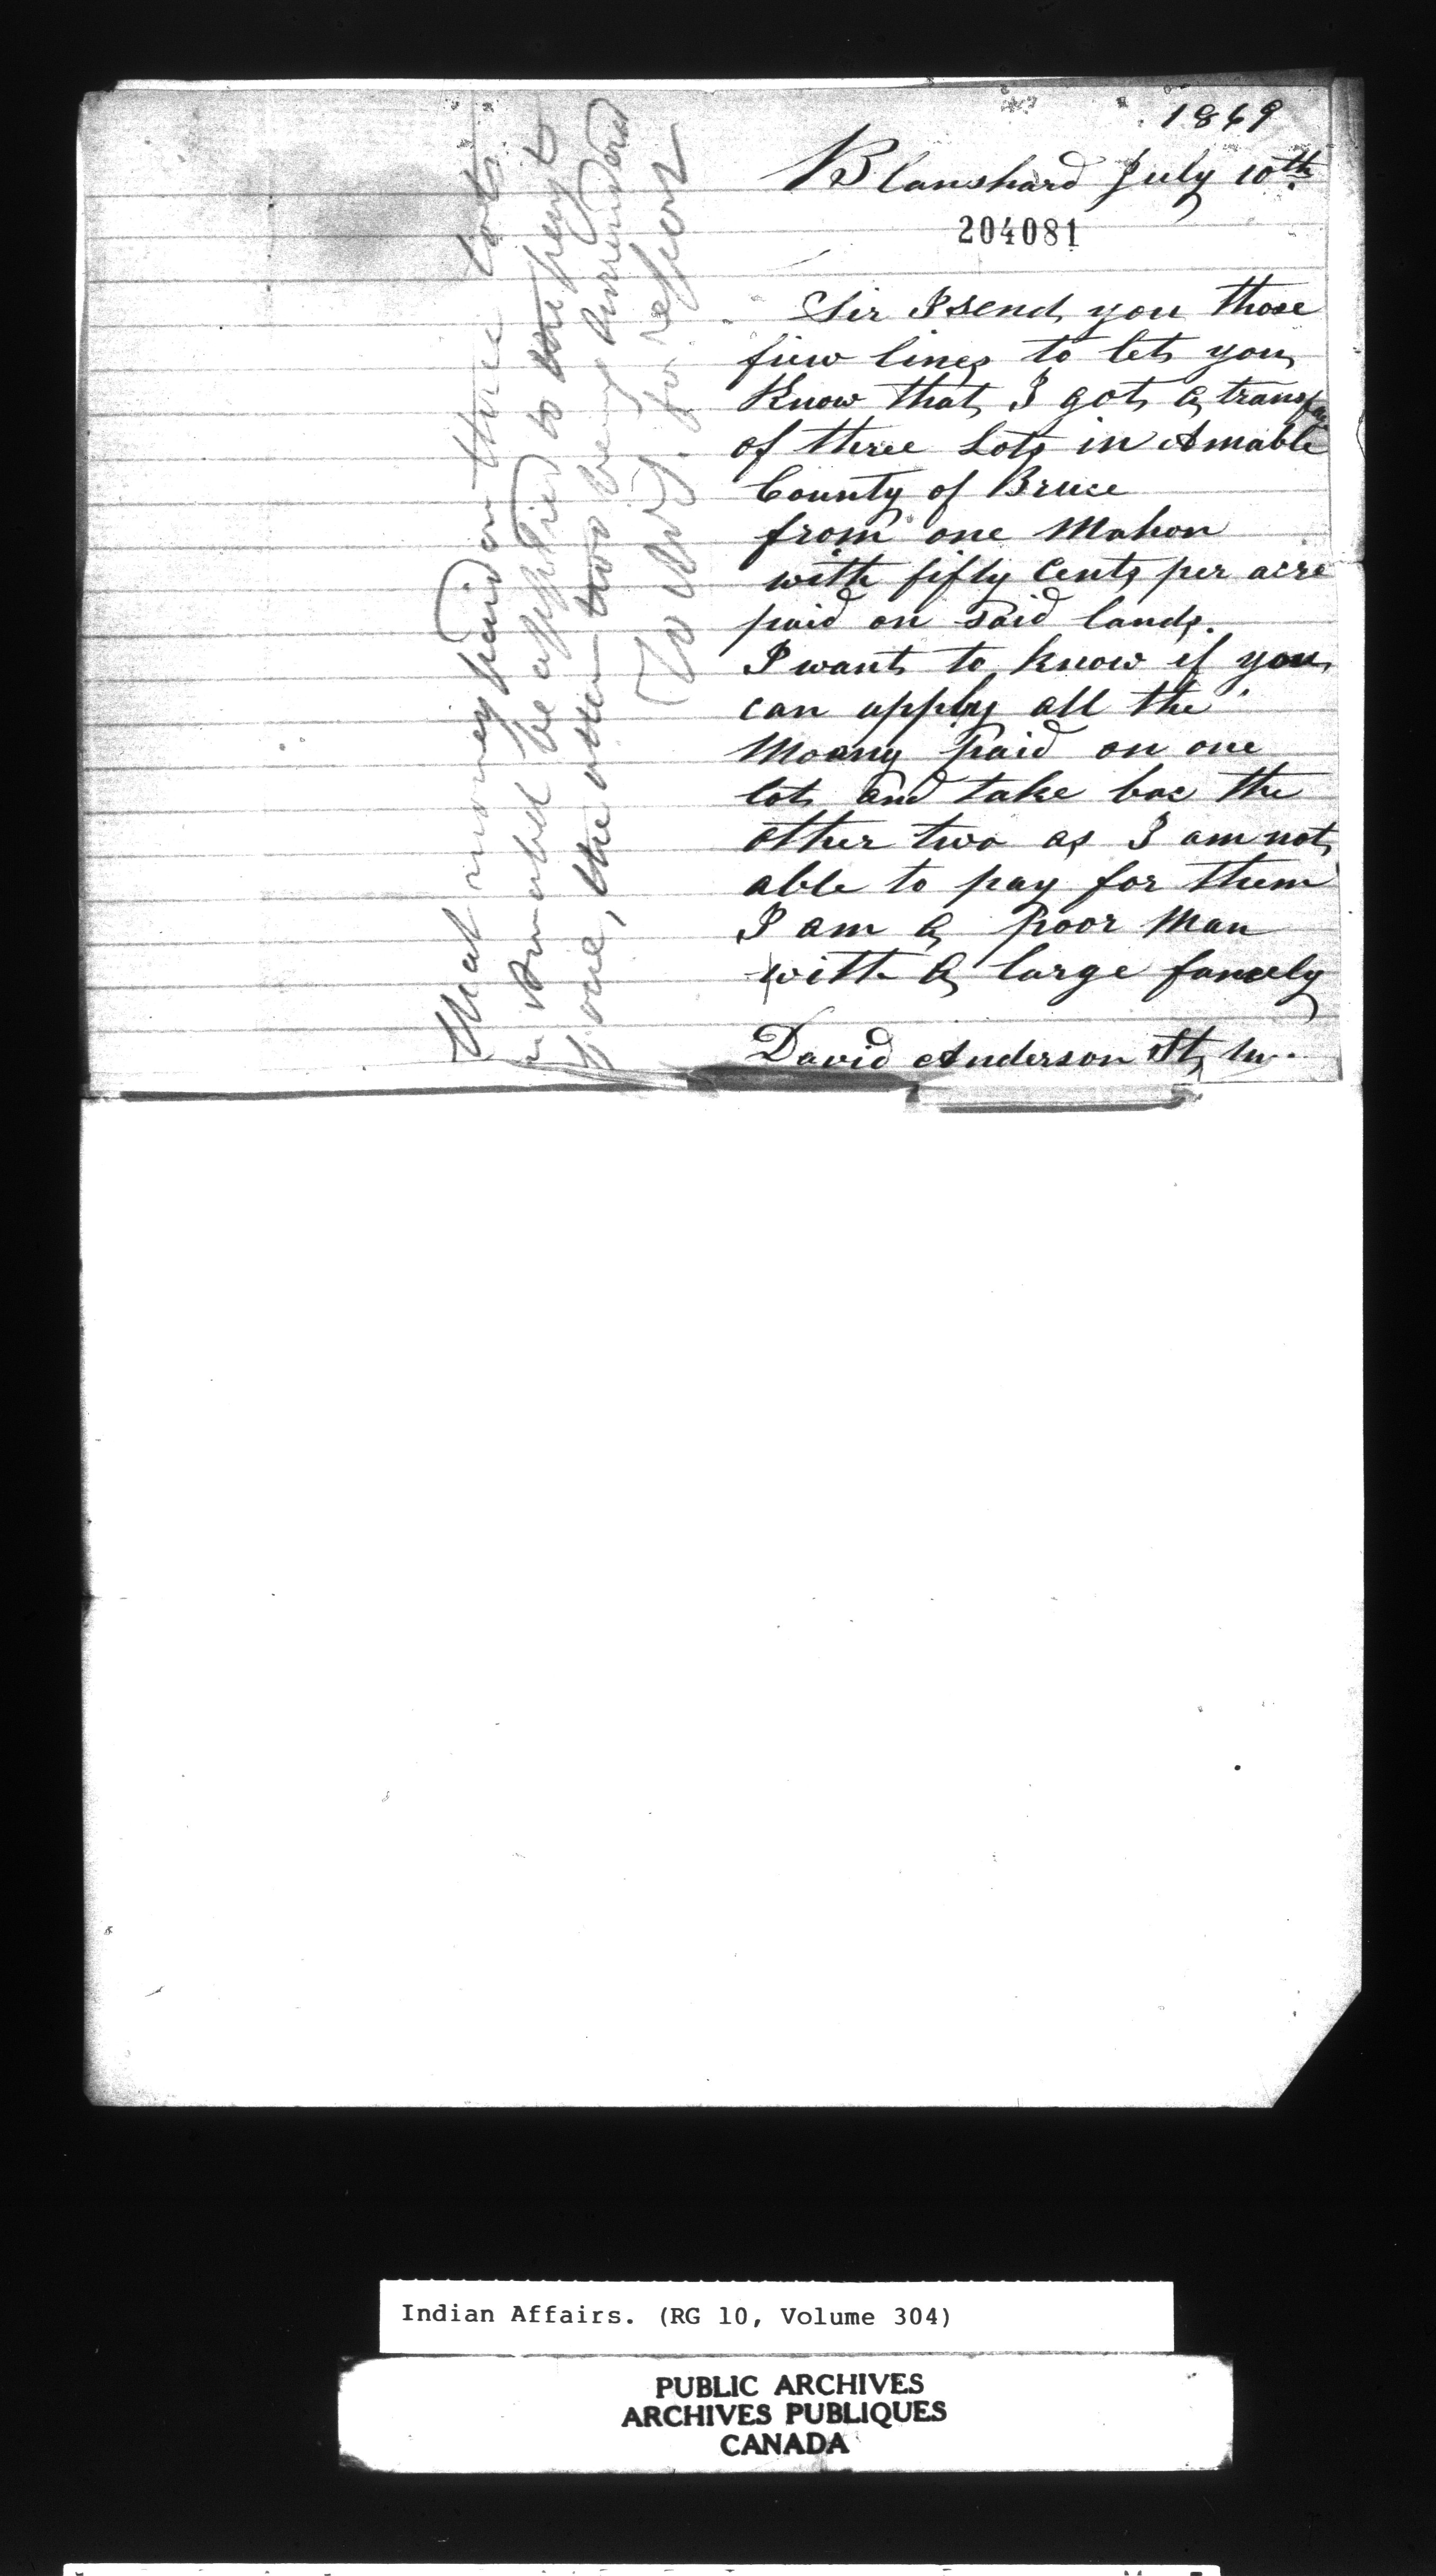 1869
Blanshard July 10th
204081
Sir I send you those
fiew lines to let you
Know that I got a transfer
of three Lots in Amable
County of Bruce
from one Mahon
with fifty Cents per acre
paid on said lands.
I want to know if you
can apply all the
Moany paid on one
lot and take bac the
other two as I am not
able to pay for them
I am a poor Man
with a large family
David Anderson St, M.
That money paid on three lots
in Amabel be applied to the payt
of one, the other two being surrendered
for report
Indian Affairs. (RG 10, Volume 304)
PUBLIC ARCHIVES
ARCHIVES PUBLIQUES
CANADA